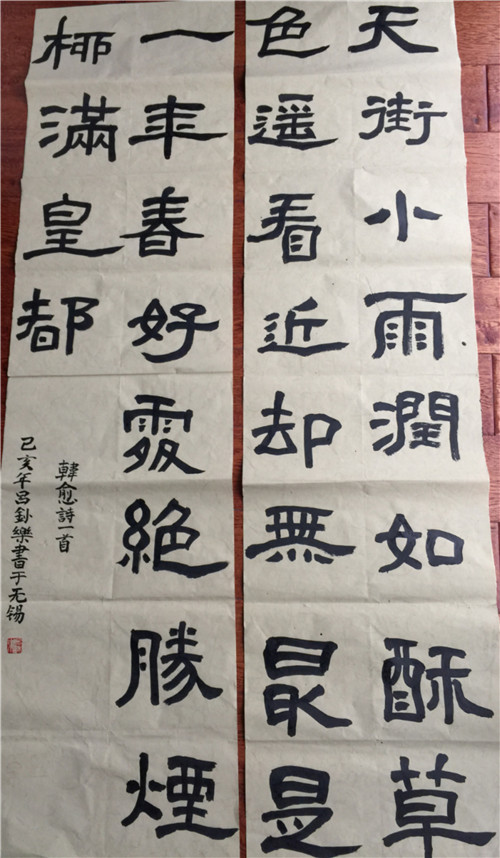 天街小雨潤如酥草
色遥看近却無最是
一年春好處絕勝煙
柳滿皇都
韓愈詩一首
己亥年呂釗樂書于无锡